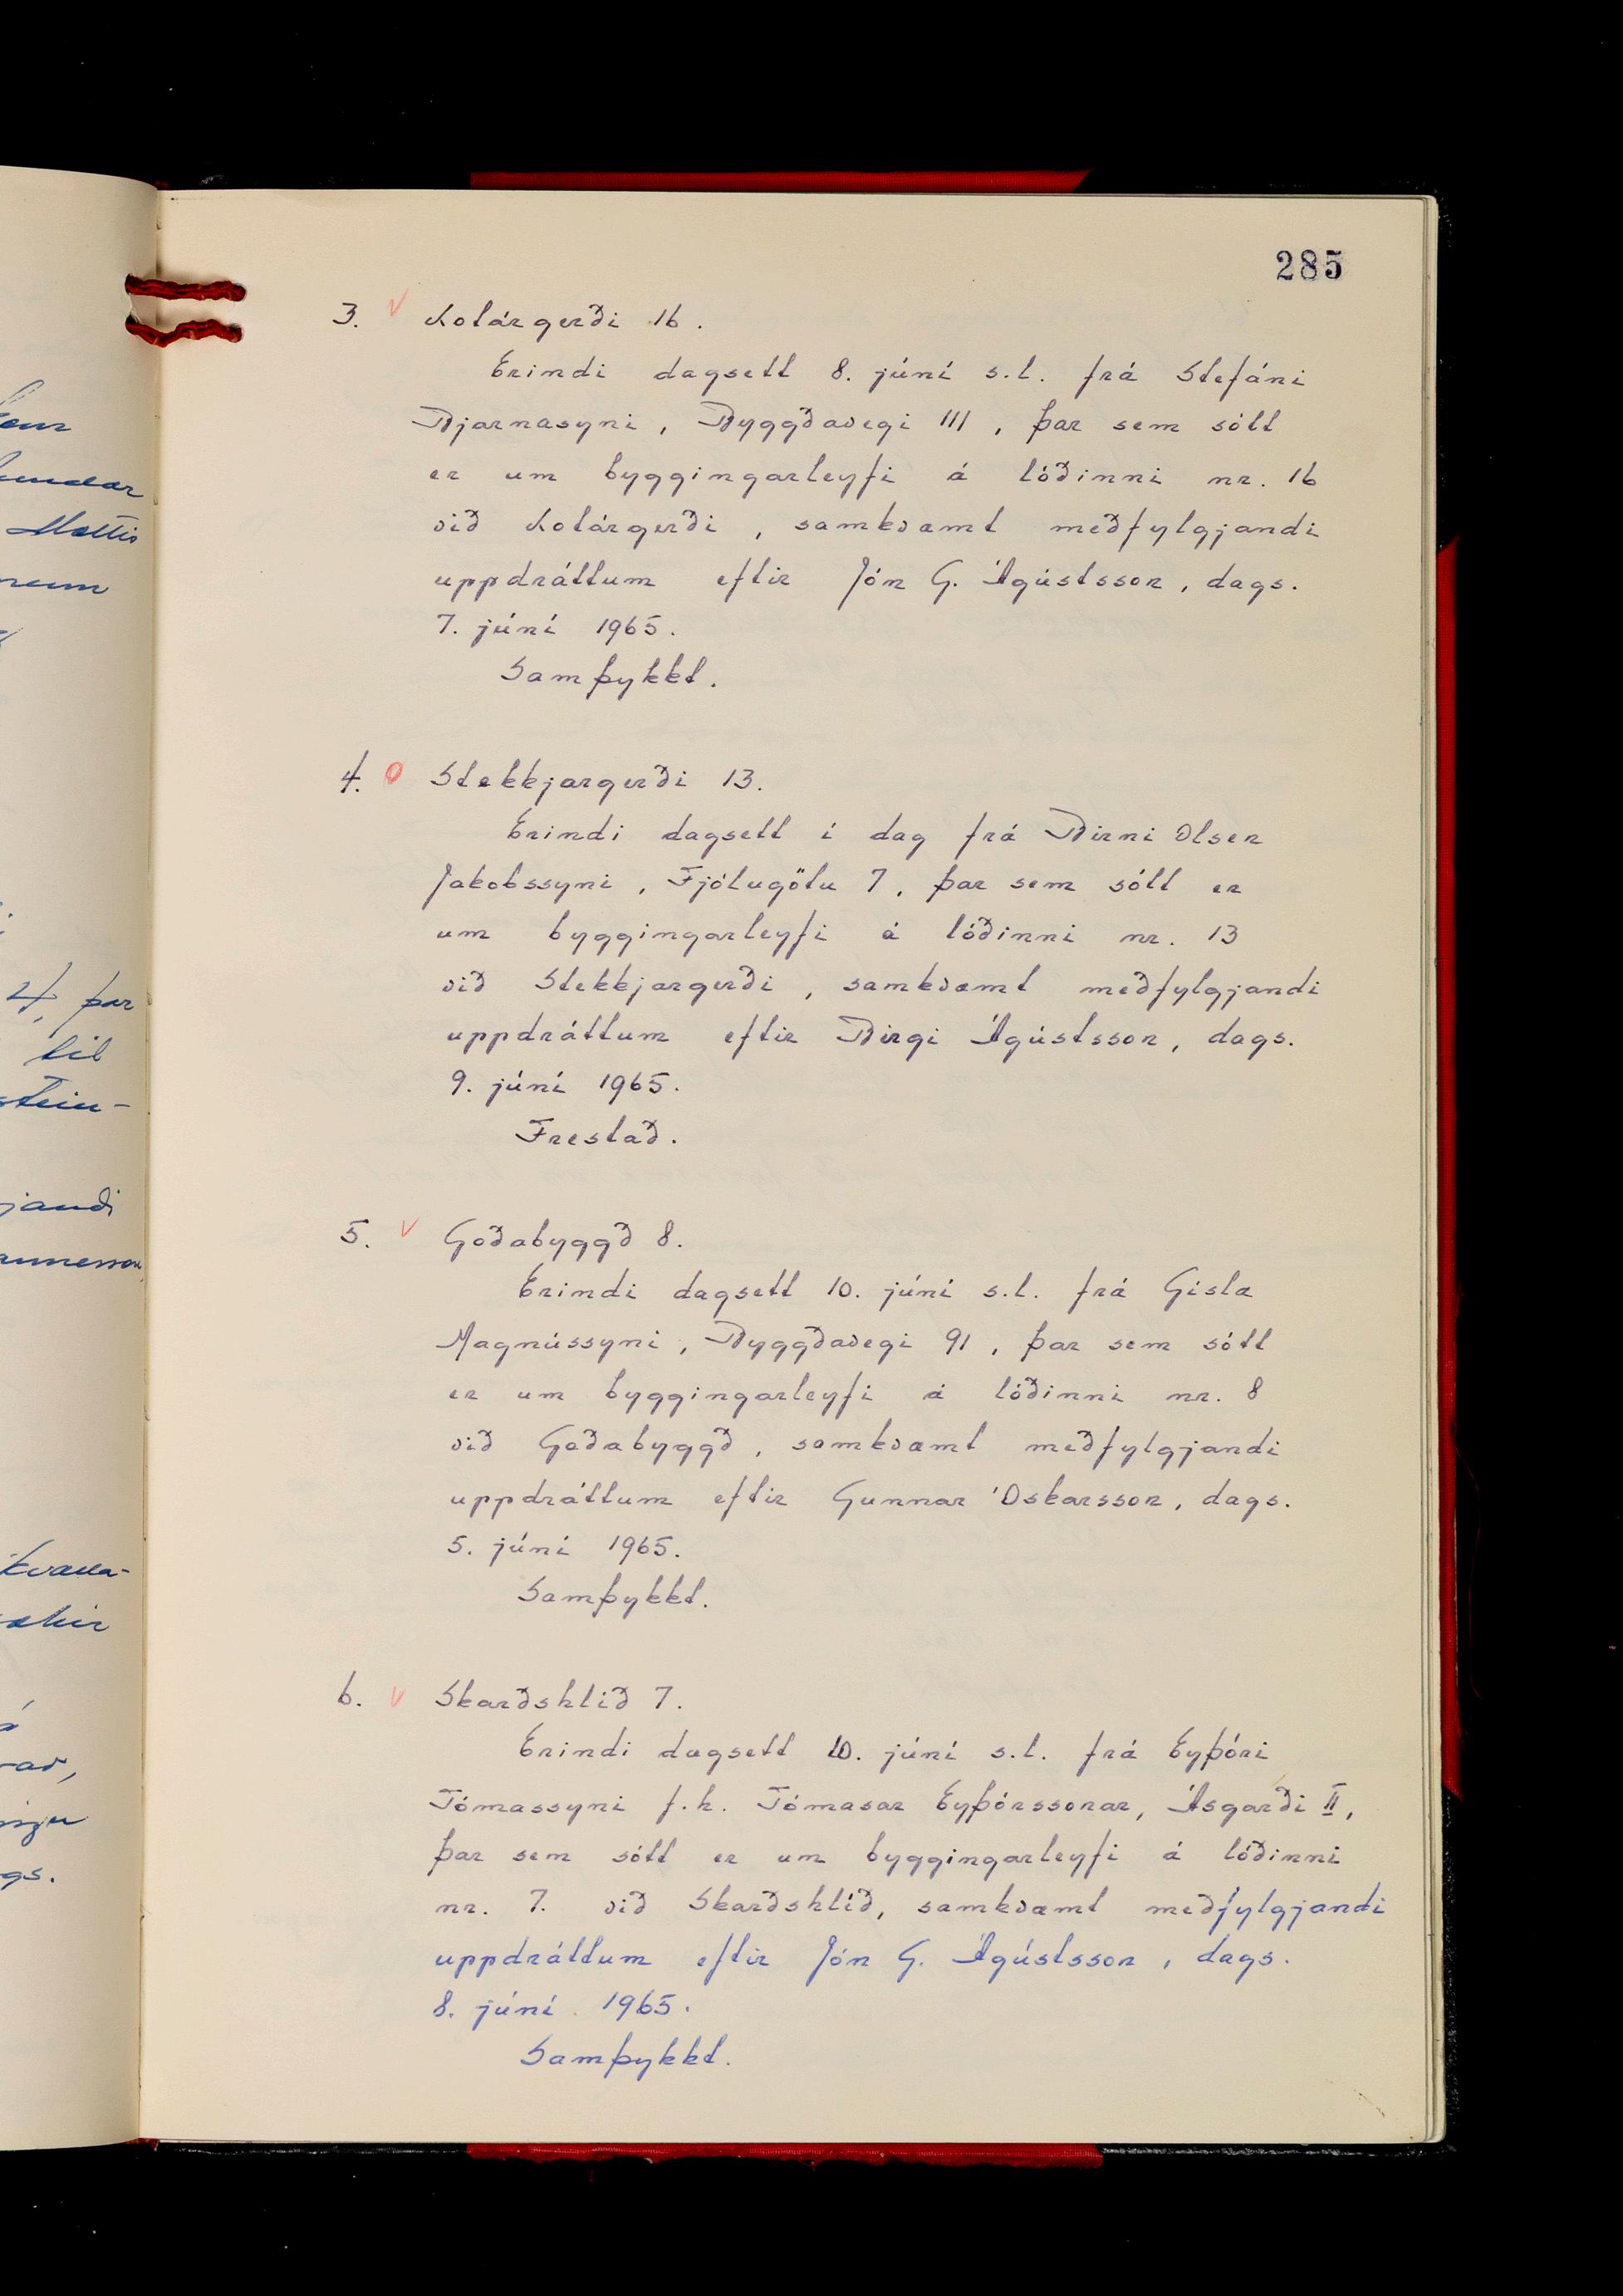 285
3. V Kotárgerði 16.
Erindi dagsett 8. júní s.l. frá Stefáni
Bjarnasyni, Byggðavegi 111, þar sem sótt
er um byggingarleyfi á lóðinni nr. 16
við Kotárgerði, samkvæmt meðfylgjandi
uppdráttum eftir Jón G. Ágústsson, dags.
7. júní 1965.
Samþykkt.
4. O Stekkjargerði 13.
Erindi dagsett í dag frá Birni Olsen
Jakobssyni, Fjólugötu 7, þar sem sótt er
um byggingarleyfi á lóðinni nr. 13
við Stekkjargerði, samkvæmt meðfylgjandi
uppdráttum eftir Birgi Ágústsson, dags.
9. júní 1965.
Frestað.
5. V Goðabyggð 8.
Erindi dagsett 10. júní s.l. frá Gísla
Magnússyni, Byggðavegi 91, þar sem sótt
er um byggingarleyfi á lóðinni nr. 8
við Goðabyggð, samkvæmt meðfylgjandi
uppdráttum eftir Gunnar Óskarsson, dags.
5. júní 1965.
Samþykkt.
6. V Skarðshlíð 7.
Erindi dagsett 10. júní s.l. frá Eyþóri
Tómassyni f.h. Tómasar Eyþórssonar, Ásgarði II,
þar sem sótt er um byggingarleyfi á lóðinni
nr. 7. við Skarðshlíð, samkvæmt meðfylgjandi
uppdráttum eftir Jón G. Ágústsson, dags.
8. júní 1965.
Samþykkt.